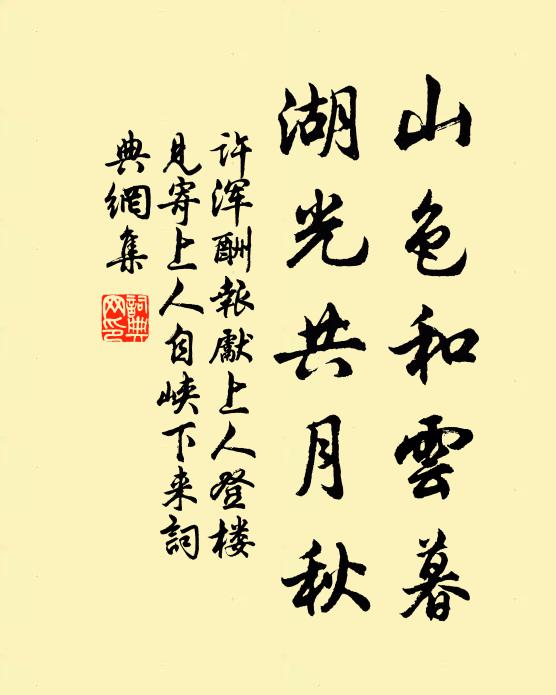 山色和雲暮
湖光共月秋
许浑酬報獻上人登楼
見寄上人自峽下来詞
典網集
詞典
网印